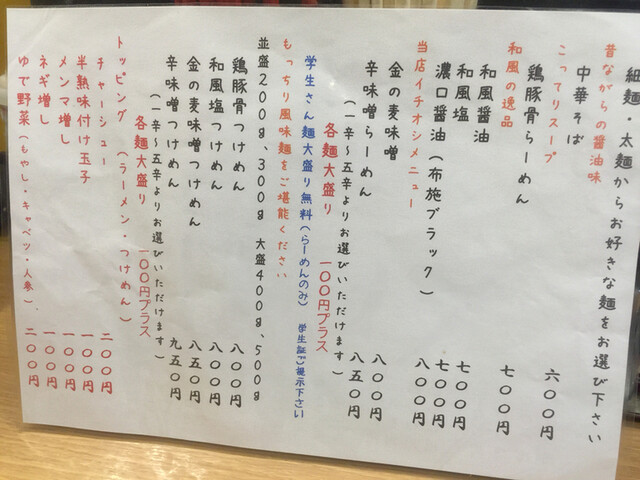 細麺・太麺からお好きな麺をお選び下さい
昔ながらの醤油味
中華そば 六〇〇円
こってりスープ
鶏豚骨らーめん 七〇〇円
和風の逸品
和風醤油 七〇〇円
和風塩 七〇〇円
濃口醤油(布施ブラック) 八〇〇円
当店イチオシメニュー
金の麦味噌 八〇〇円
辛味噌らーめん 八五〇円
(一辛〜五辛よりお選びいただけます)
各麺大盛り 一〇〇円プラス
学生さん麺大盛り無料(らーめんのみ) 学生証ご提示下さい
もっちり風味麺をご堪能ください
並盛200g、300g 大盛400g、500g
鶏豚骨つけめん 八〇〇円
和風塩つけめん 八〇〇円
金の麦味噌つけめん 八五〇円
辛味噌つけめん 九五〇円
(一辛〜五辛よりお選びいただけます)
各麺大盛り 一〇〇円プラス
トッピング(ラーメン・つけめん)
チャーシュー 二〇〇円
半熟味付け玉子 一〇〇円
メンマ増し 一〇〇円
ネギ増し 一〇〇円
ゆで野菜(もやし・キャベツ・人参) 二〇〇円